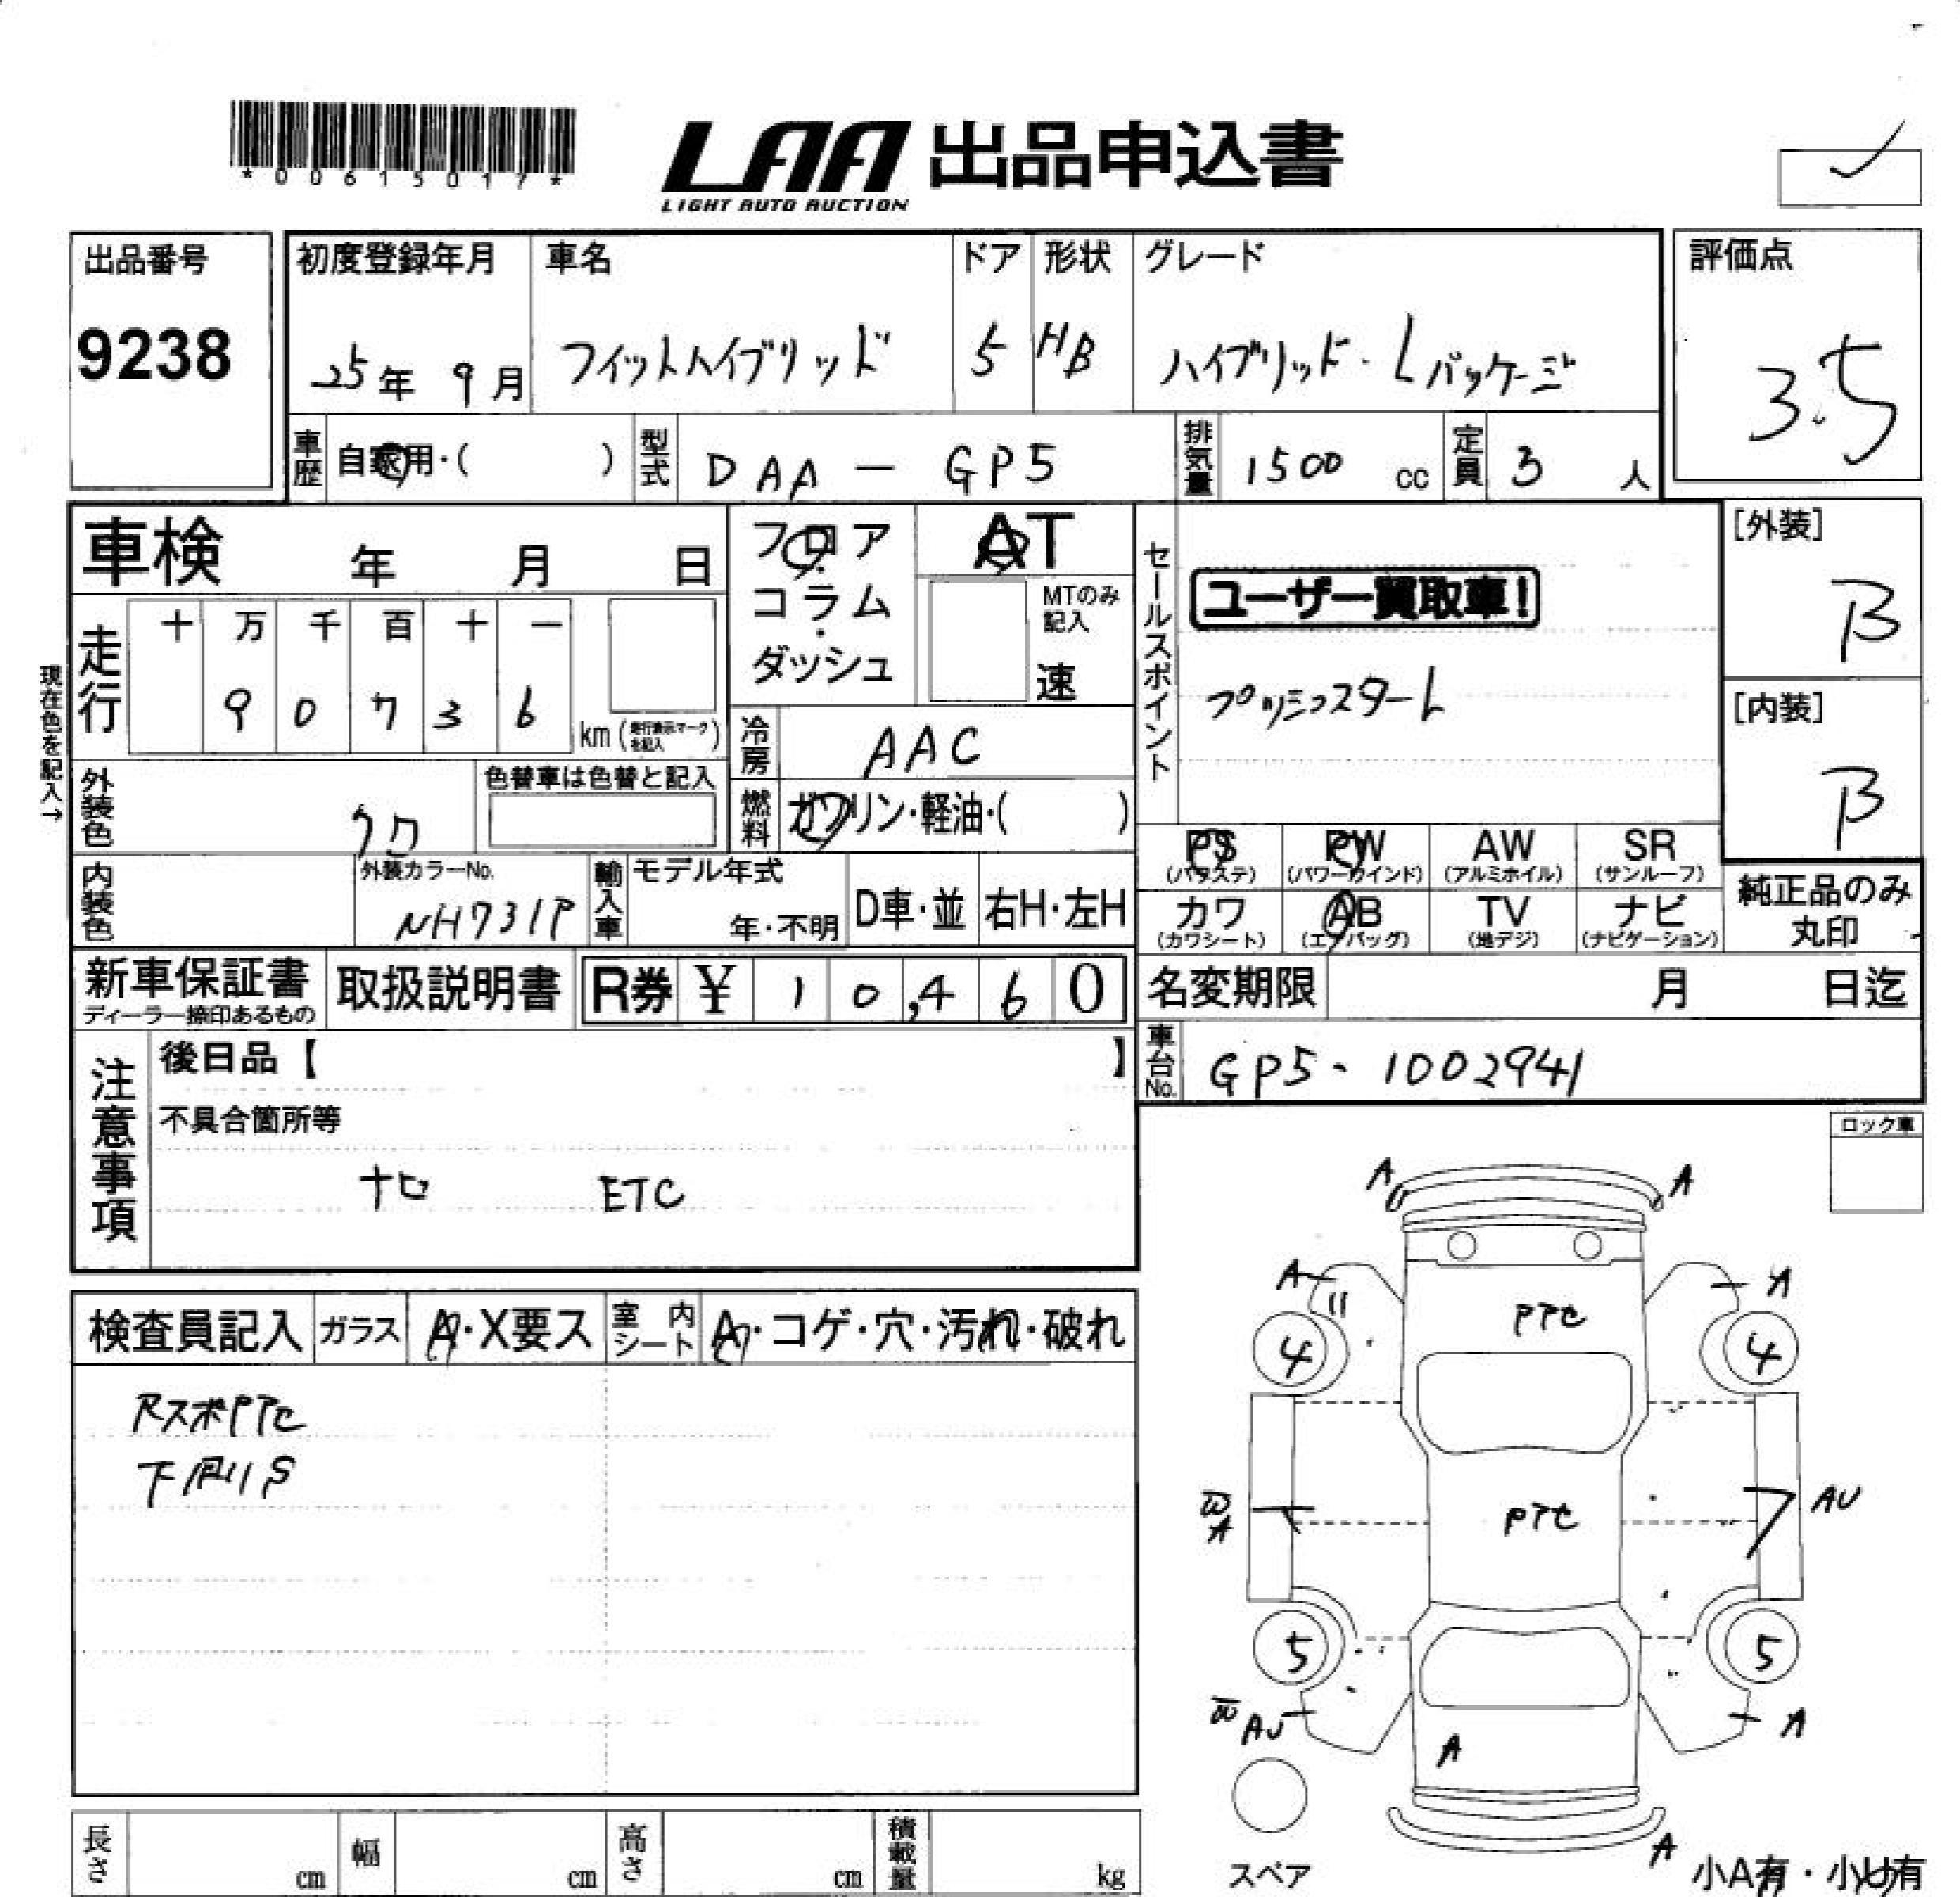 *00615017*
LAA 出品申込書
LIGHT AUTO AUCTION
出品番号
9238
初度登録年月
25年 9月
車名
フィットハイブリッド
ドア
5
形状
HB
グレード
ハイブリッド・Lパッケージ
評価点
3.5
車歴 自家用・( )
型式 DAA - GP5
排気量 1500 cc
定員 5 人
車検 年 月 日
フロア
コラム
・
ダッシュ
AT
MTのみ
記入
速
走行
十 万 千 百 十 一
9 0 7 3 6
km (走行表示マークを記入)
現在色を記入→
冷房 AAC
外装色 クロ
色替車は色替と記入
燃料 ガソリン・軽油・( )
内装色
外装カラーNo.
NH731P
輸入車
モデル年式
年・不明
D車・並
右H・左H
セールスポイント
ユーザー買取車!
プッシュスタート
[外装]
B
[内装]
B
PS (パワステ)
PW (パワーウインド)
AW (アルミホイル)
SR (サンルーフ)
カワ (カワシート)
AB (エアバッグ)
TV (地デジ)
ナビ (ナビゲーション)
純正品のみ
丸印
新車保証書
ディーラー捺印あるもの
取扱説明書
R券 ¥ 10,460
名変期限 月 日迄
車台No. GP5-1002941
注意事項
後日品【 】
不具合箇所等
ナビ ETC
ロック車
検査員記入
ガラス
A・X要ス
室内シート
A・コゲ・穴・汚れ・破れ
RスポPTC
下廻りS
A A
A A
PTC
4 4
W
A
PTC
AU
5 5
W AU
A
A
A
スペア
小A有・小U有
長さ cm
幅 cm
高さ cm
積載量 kg